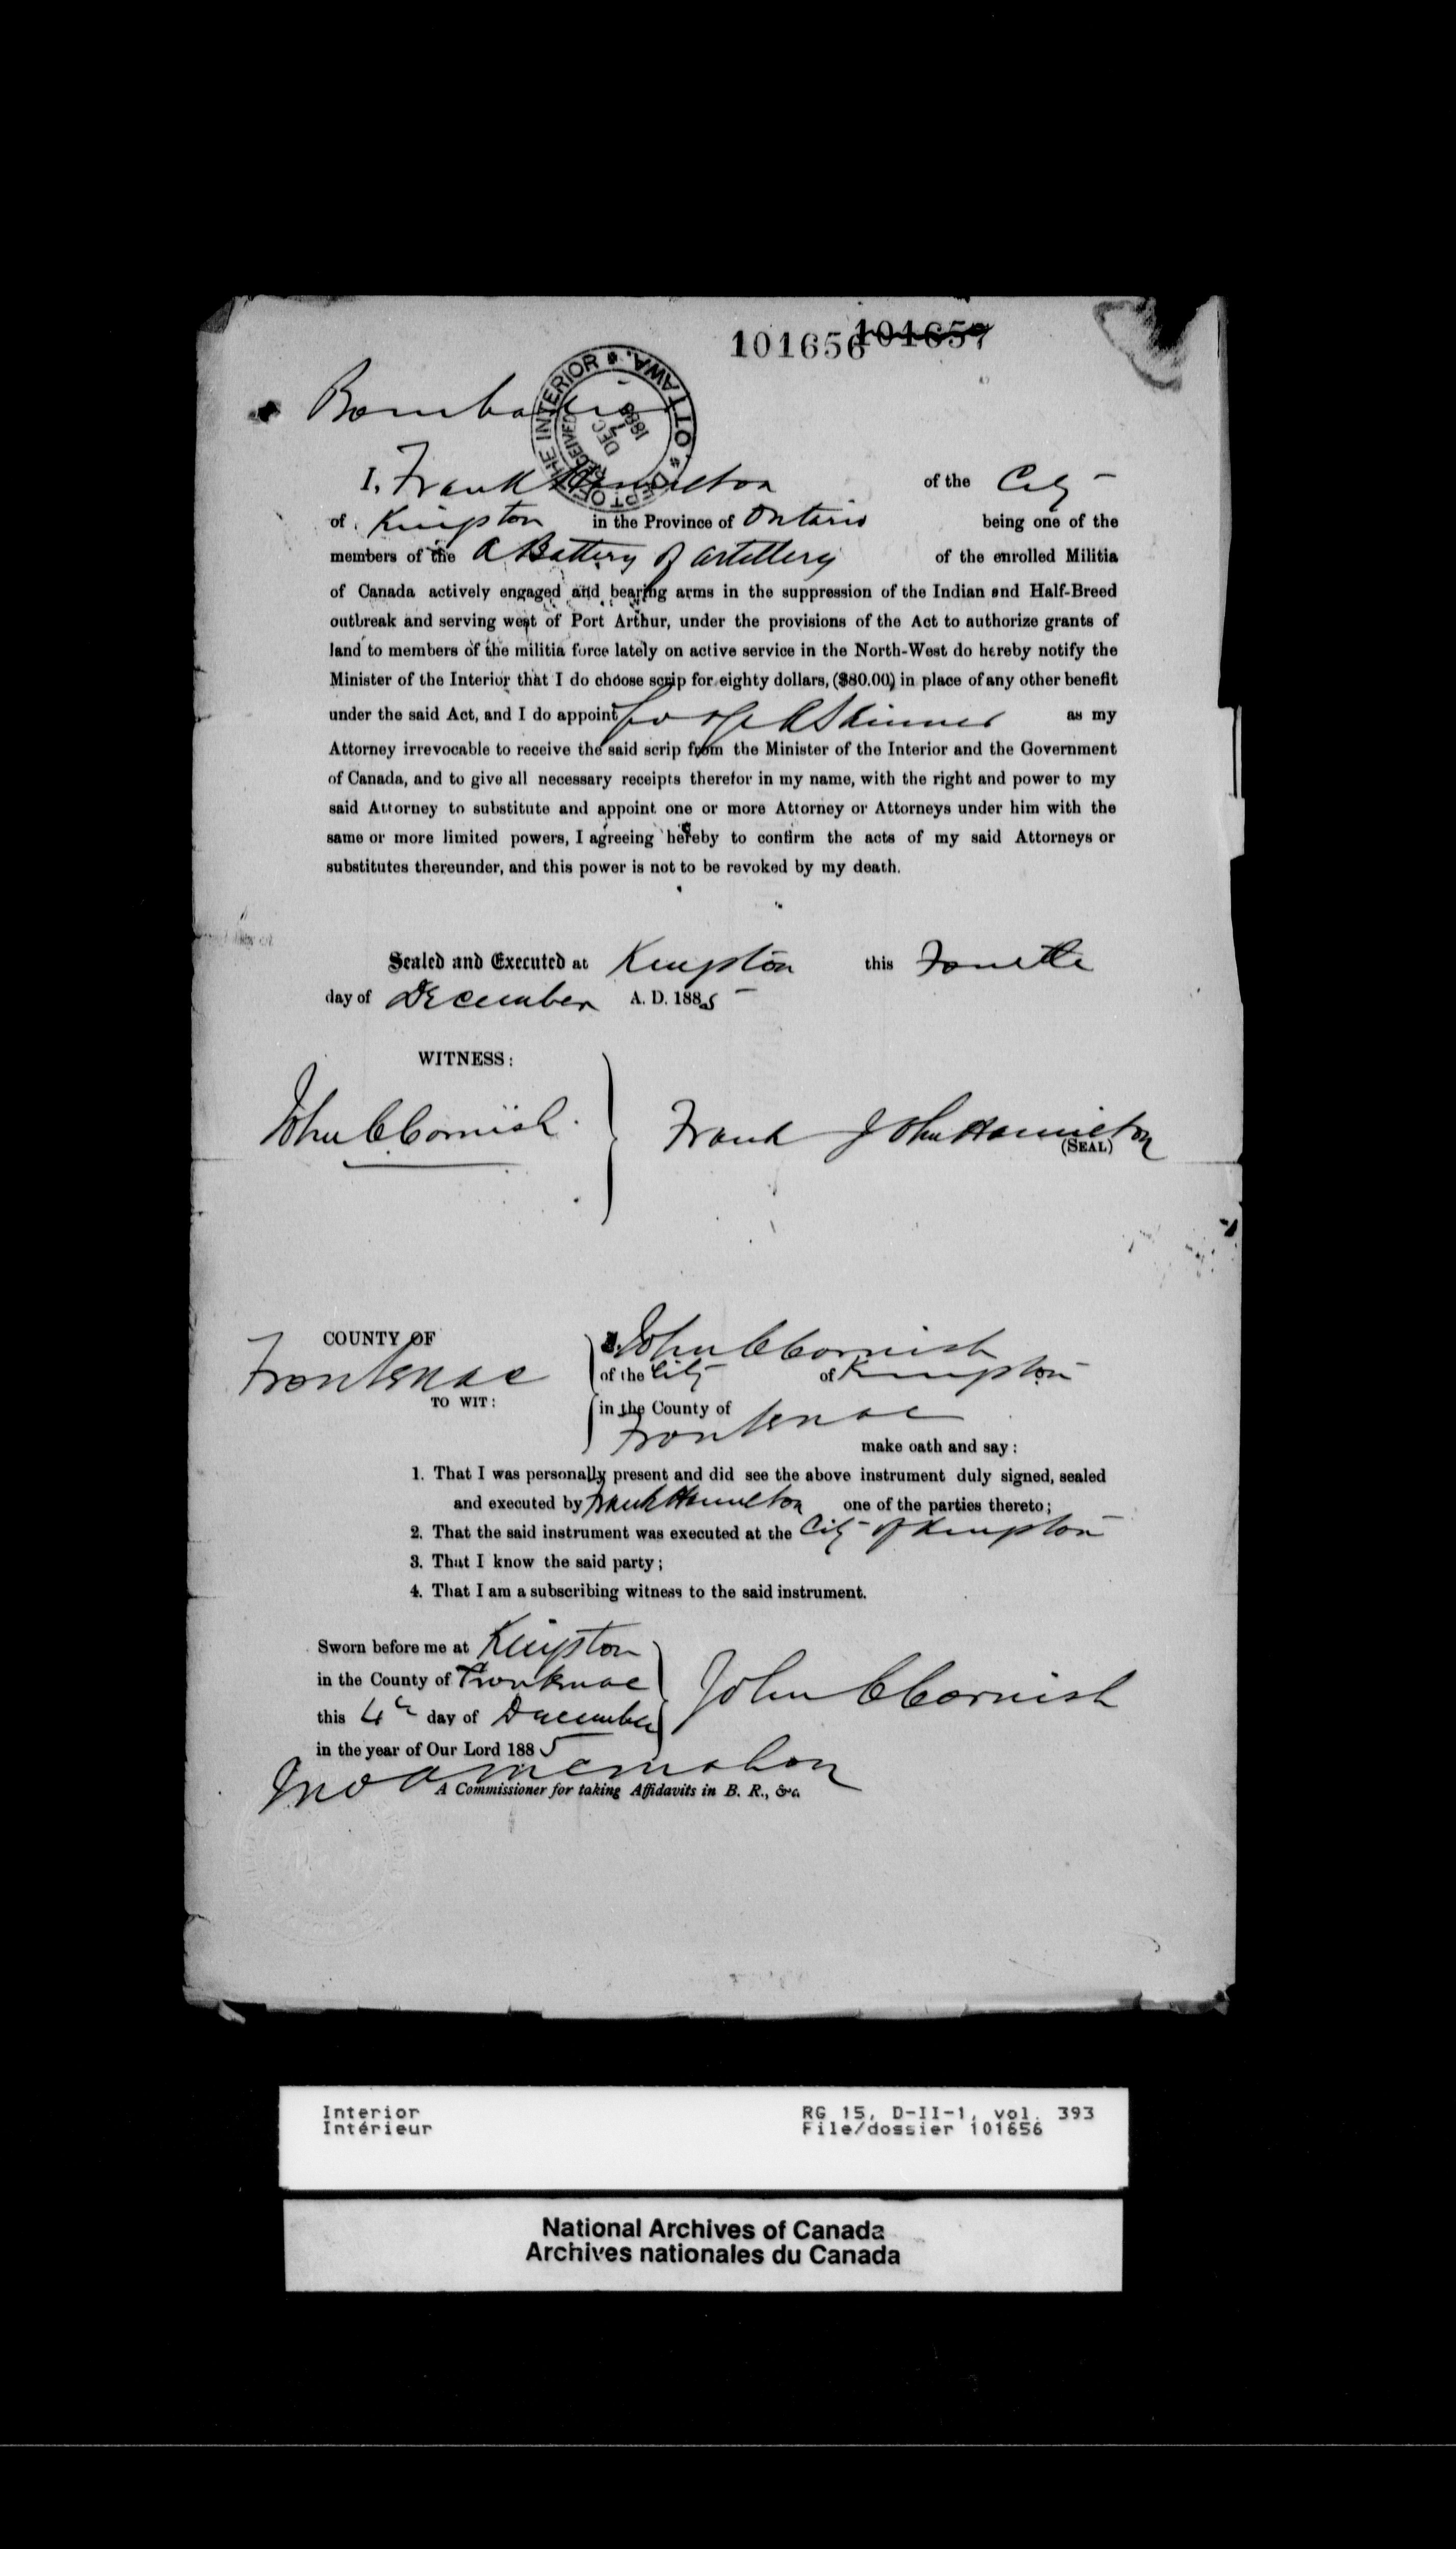 101656 101657
Bombadier
DEPT OF THE INTERIOR * OTTAWA. *
RECEIVED DEC 7 1885
I, Frank Hamilton of the City
of Kingston in the Province of Ontario being one of the
members of the A Battery of Artillery of the enrolled Militia
of Canada actively engaged and bearing arms in the suppression of the Indian and Half-Breed
outbreak and serving west of Port Arthur, under the provisions of the Act to authorize grants of
land to members of the militia force lately on active service in the North-West do hereby notify the
Minister of the Interior that I do choose scrip for eighty dollars, ($80.00) in place of any other benefit
under the said Act, and I do appoint Skinner as my
Attorney irrevocable to receive the said scrip from the Minister of the Interior and the Government
of Canada, and to give all necessary receipts therefor in my name, with the right and power to my
said Attorney to substitute and appoint one or more Attorney or Attorneys under him with the
same or more limited powers, I agreeing hereby to confirm the acts of my said Attorneys or
substitutes thereunder, and this power is not to be revoked by my death.
Sealed and Executed at Kingston this Fourth
day of December A. D. 1885
WITNESS:
John C Cornish. Frank John Hamilton
(SEAL)
COUNTY OF I, John C Cornish
Frontenac of the City of Kingston
TO WIT: in the County of
Frontenac
make oath and say:
1. That I was personally present and did see the above instrument duly signed, sealed
and executed by Frank Hamilton one of the parties thereto;
2. That the said instrument was executed at the City of Kingston
3. That I know the said party;
4. That I am a subscribing witness to the said instrument.
Sworn before me at Kingston
in the County of Frontenac John C Cornish
this 4th day of December
in the year of Our Lord 1885
Jno A McMahon
A Commissioner for taking Affidavits in B. R., &c.
Interior RG 15, D-II-1, vol. 393
Intérieur File/dossier 101656
National Archives of Canada
Archives nationales du Canada